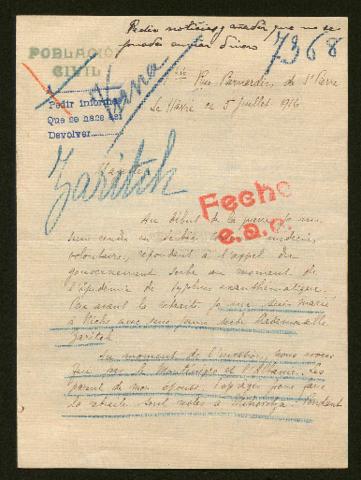 Pedir noticias y añadir que no se
pueden enviar dinero
7368
POBLACIÓ
CIVIL
Rue Bernardin de St Pierre
Le Havre ce 5 juillet 1916
Pedir informe
Que se hace así
Devolver
Zaritch
Fecho
Au début de la guerre je me
suis rendu en Serbie comme médecin
volontaire, répondant à l'appel du
gouvernement serbe au moment de
l'épidémie de typhus exanthématique.
avant la retraite je me suis marié
à Nich avec une jeune Mademoiselle
Zaritch
Au moment de l'invasion, nous avons
fui par le Monténégro et l'Albanie. Les
parents de mon épouse, trop âgés pour faire
la retraite sont restés à